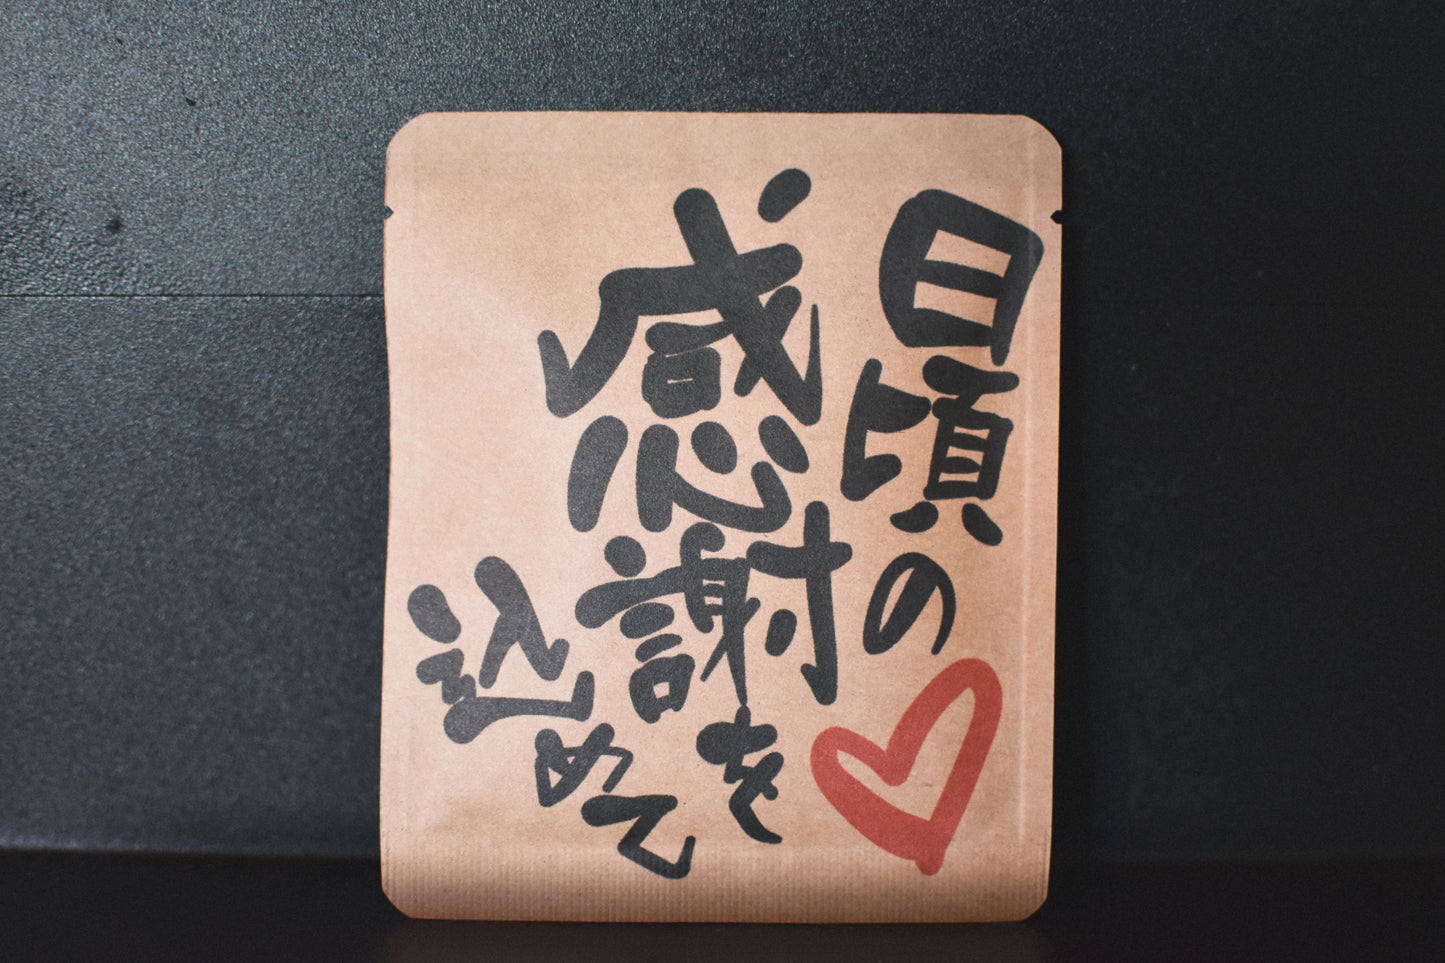 日頃の
感謝を
込めて